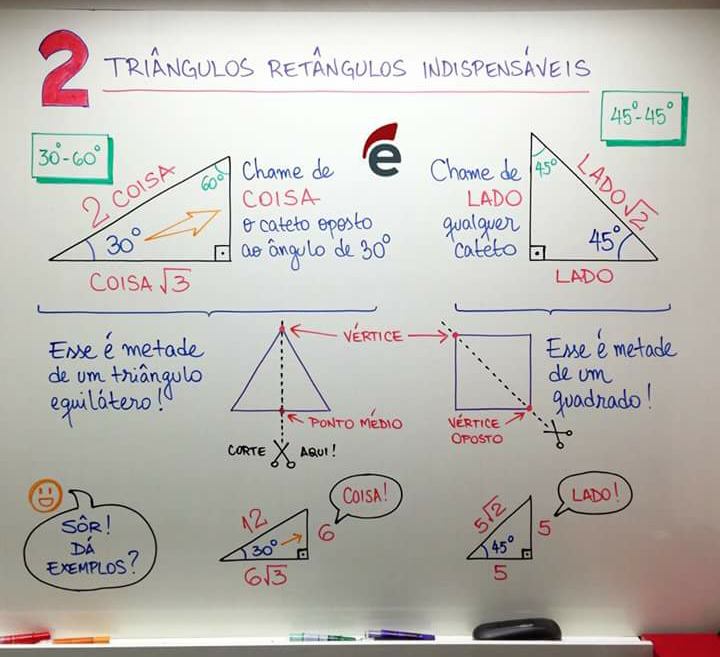 2 TRIÂNGULOS RETÂNGULOS INDISPENSÁVEIS
30°-60°
2 COISA
60°
30°
COISA√3
Chame de
COISA
o cateto oposto
ao ângulo de 30°
e
45°-45°
Chame de
LADO
qualquer
catéto
45°
LADO√2
45°
LADO
Esse é metade
de um triângulo
equilátero!
VÉRTICE
PONTO MÉDIO
CORTE AQUI!
VÉRTICE
OPOSTO
Esse é metade
de um
quadrado!
SÔR!
DÁ
EXEMPLOS?
12
30°
6
6√3
COISA!
5√2
45°
5
5
LADO!